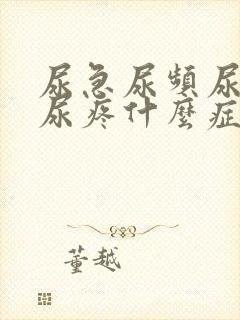 尿急尿頻尿
尿疼什麼症
董越